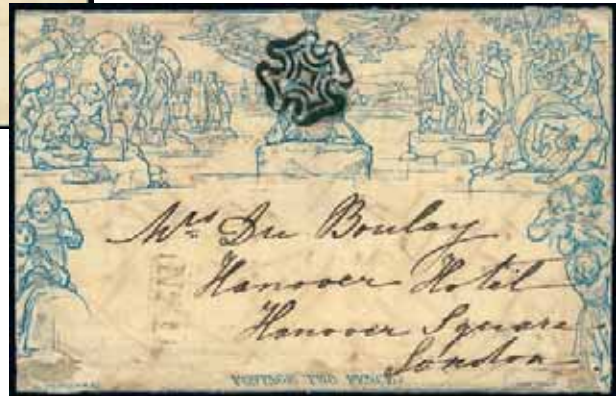 Mrs Du Boulay
Hanover Hotel
Hanover Square
London
POSTAGE TWO PENCE.